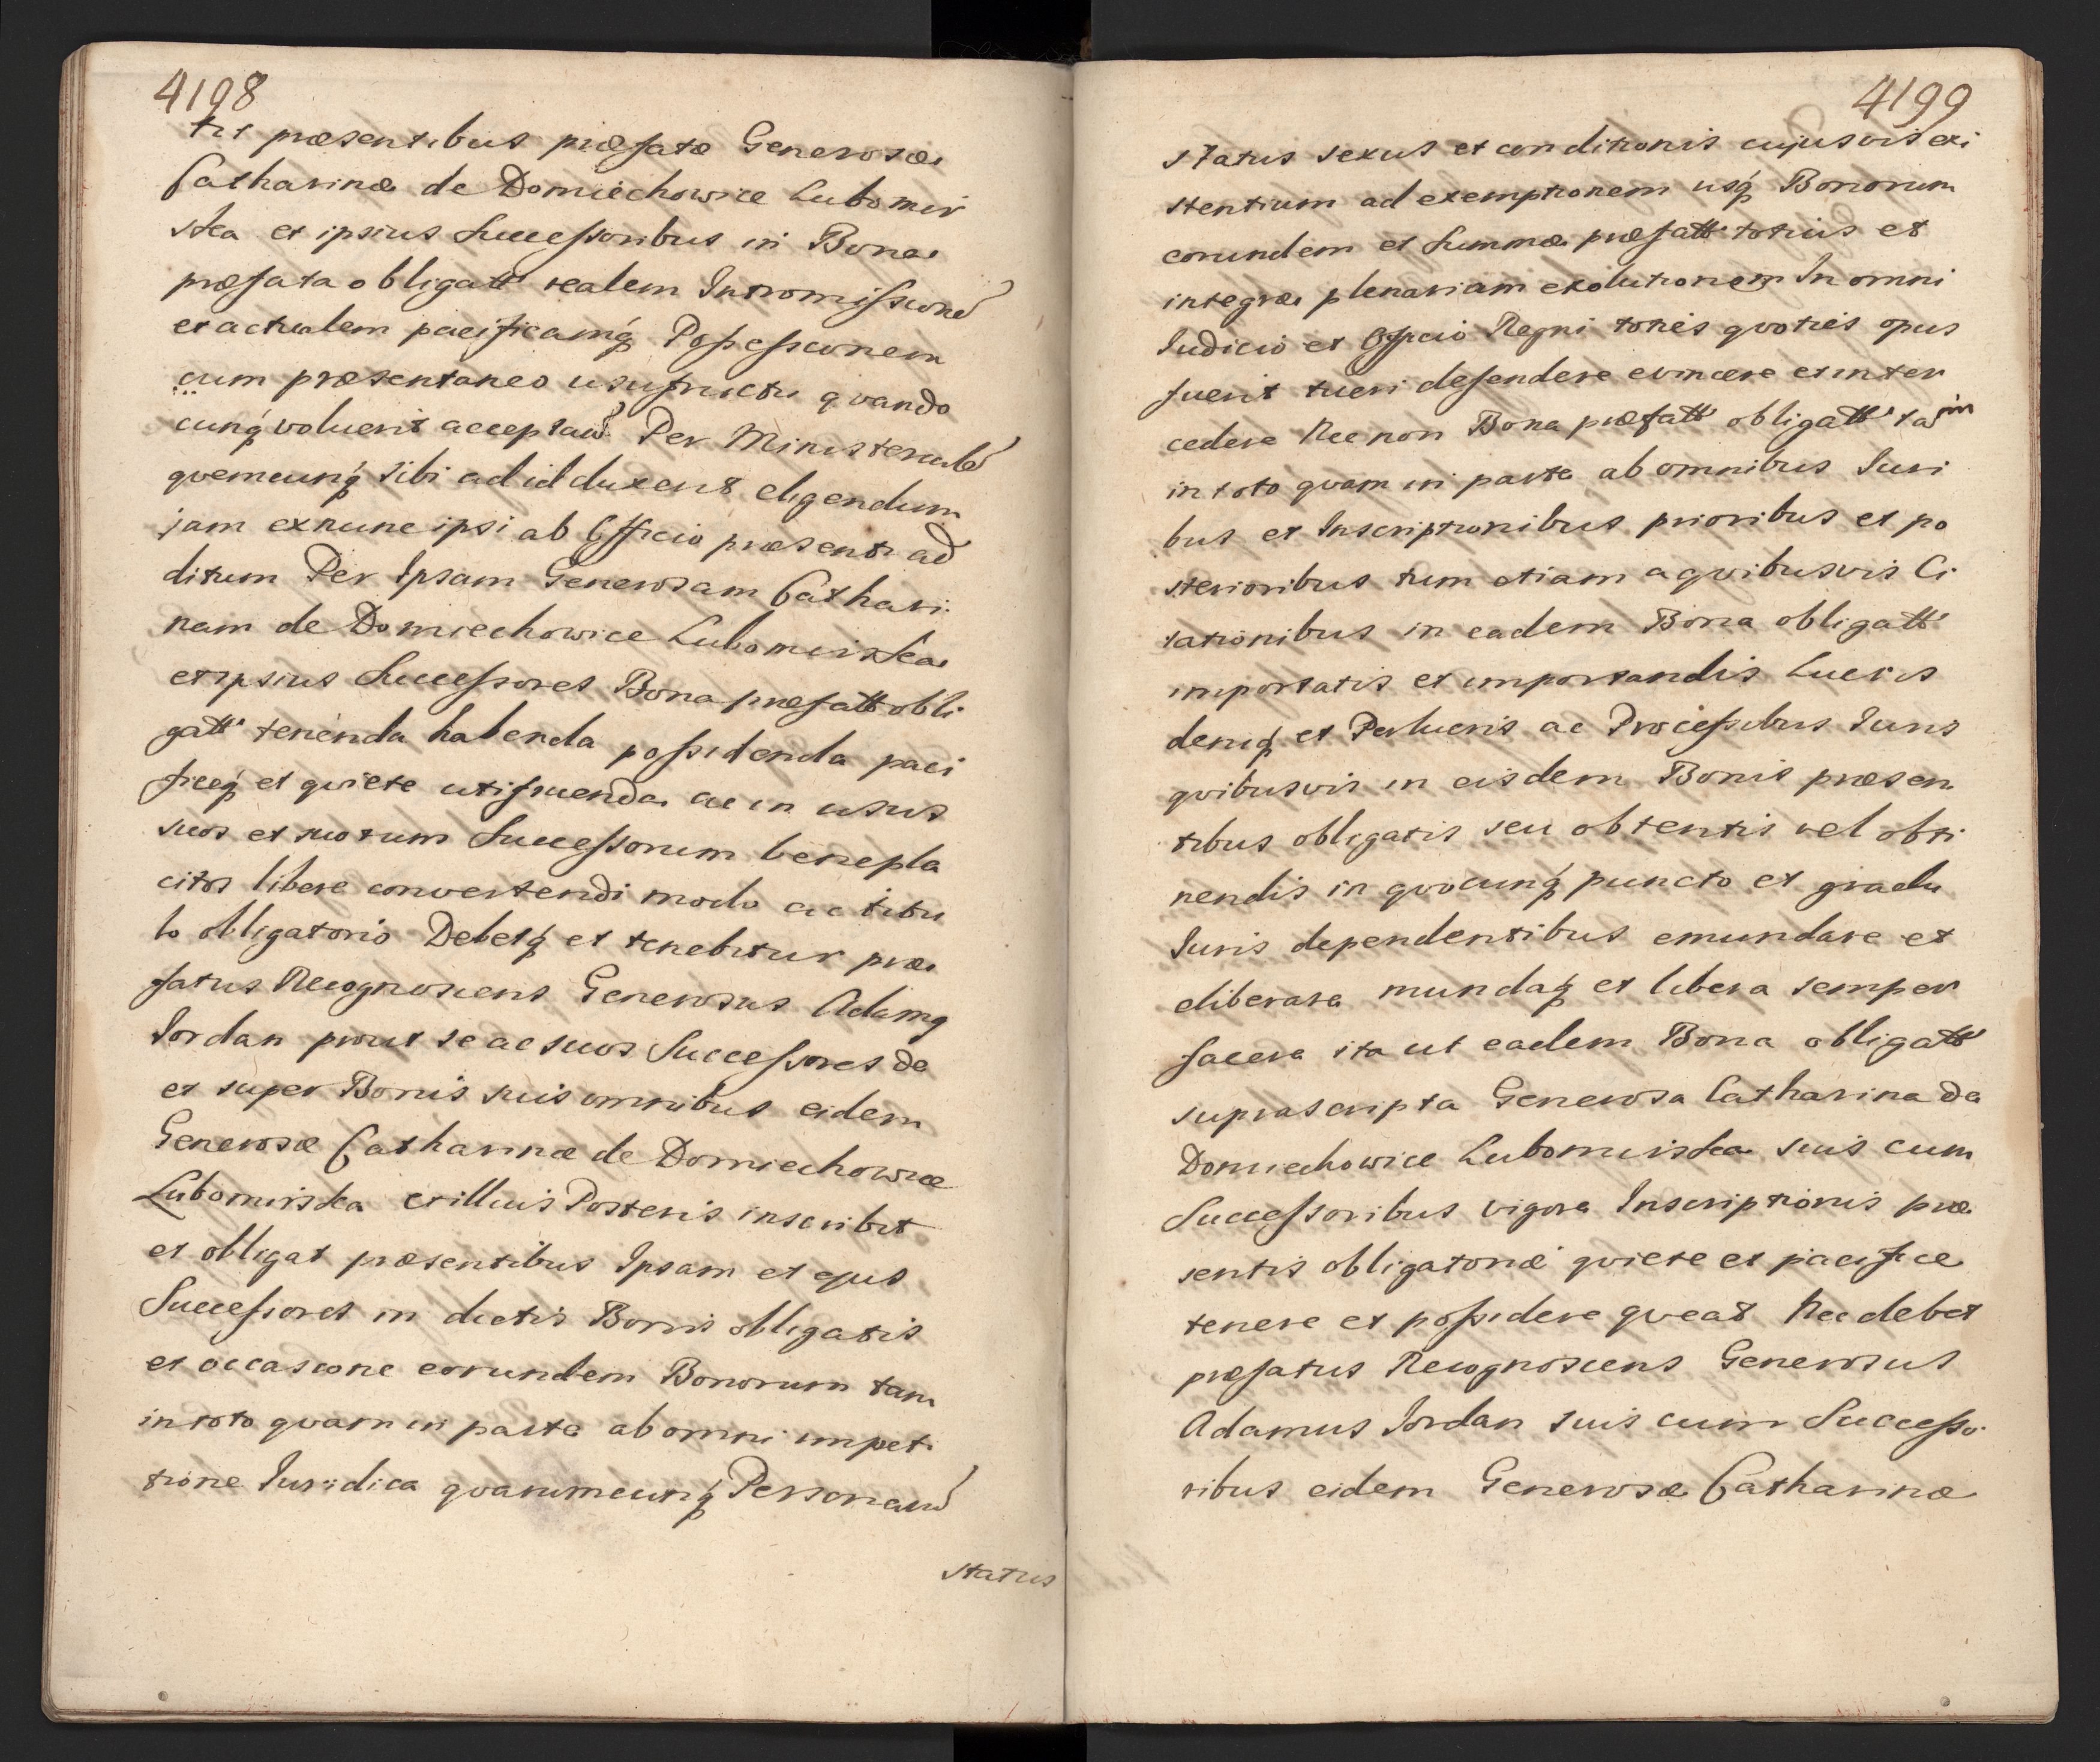 4198
tit præsentibus præfatæ Generosæ
Catharinæ de Domiechowice Lubomir
ska et ipsius Successoribus in Bona
præfata obligatt realem Intromissione
et actualem pacificamq́ Possessionem
cum præsentaneo usufructu qvando
cunq́ voluerit acceptan Per Ministeriale
qvemcunq́ sibi ad id duxerit eligendum
jam exnunc ipsi ab Officio præsenti ad
ditum Per Ipsam Generosam Cathari
nam de Domiechowice Lubomirska
et ipsius Successores Bona præfatt obli
gatt tenenda habenda possidenda paci
ficeq́ et qviete utifruenda ac in usus
suos et suorum Successorum benepla
citos libere convertendi modo ac titu
lo obligatorio Debetq́ et tenebitur præ
fatus Recognoscens Generosus Adamq
Jordan prout se ac suos Successores de
et super Bonis suis omnibus eidem
Generosæ Catharinæ de Domiechowice
Lubomirska et illius Posteris inscribit
et obligat præsentibus Ipsam et ejus
Successores in dictis Bonis obligatis
et occasione eorundem Bonorum tam
in toto qvam in parte ab omni impeti
tione Juridica qvarumcunq́ Personaru
status
4199
status sexus et conditionis cujusvis exi
stentium ad exemptionem usq́ Bonorum
eorundem et Summæ præfatt totius et
integræ plenariam exolutionem In omni
Judicio et Officio Regni toties qvoties opus
fuerit tueri defendere evincere et inter
cedere Necnon Bona præfatt obligatt tam
in toto qvam in parte ab omnibus Juri
bus et Inscriptionibus prioribus et po
sterioribus tum etiam a qvibusvis Ci
tationibus in eadem Bona obligatt
importatis et importandis Lucris
deniq́ et Perlucris ac Processibus Juris
qvibusvis in eisdem Bonis præsen
tibus obligatis seu obtentis vel obti
nendis in qvocunq́ puncto et gradu
Juris dependentibus emundare et
eliberare mundaq́ et libera semper
facere ita ut eadem Bona obligatt
suprascripta Generosa Catharina de
Domiechowice Lubomirska suis cum
Successoribus vigore Inscriptionis præ
sentis obligatoriæ qviete et pacifice
tenere et possidere qveat Nec debet
præfatus Recognoscens Generosus
Adamus Jordan suis cum Successo
ribus eidem Generosæ Catharinæ